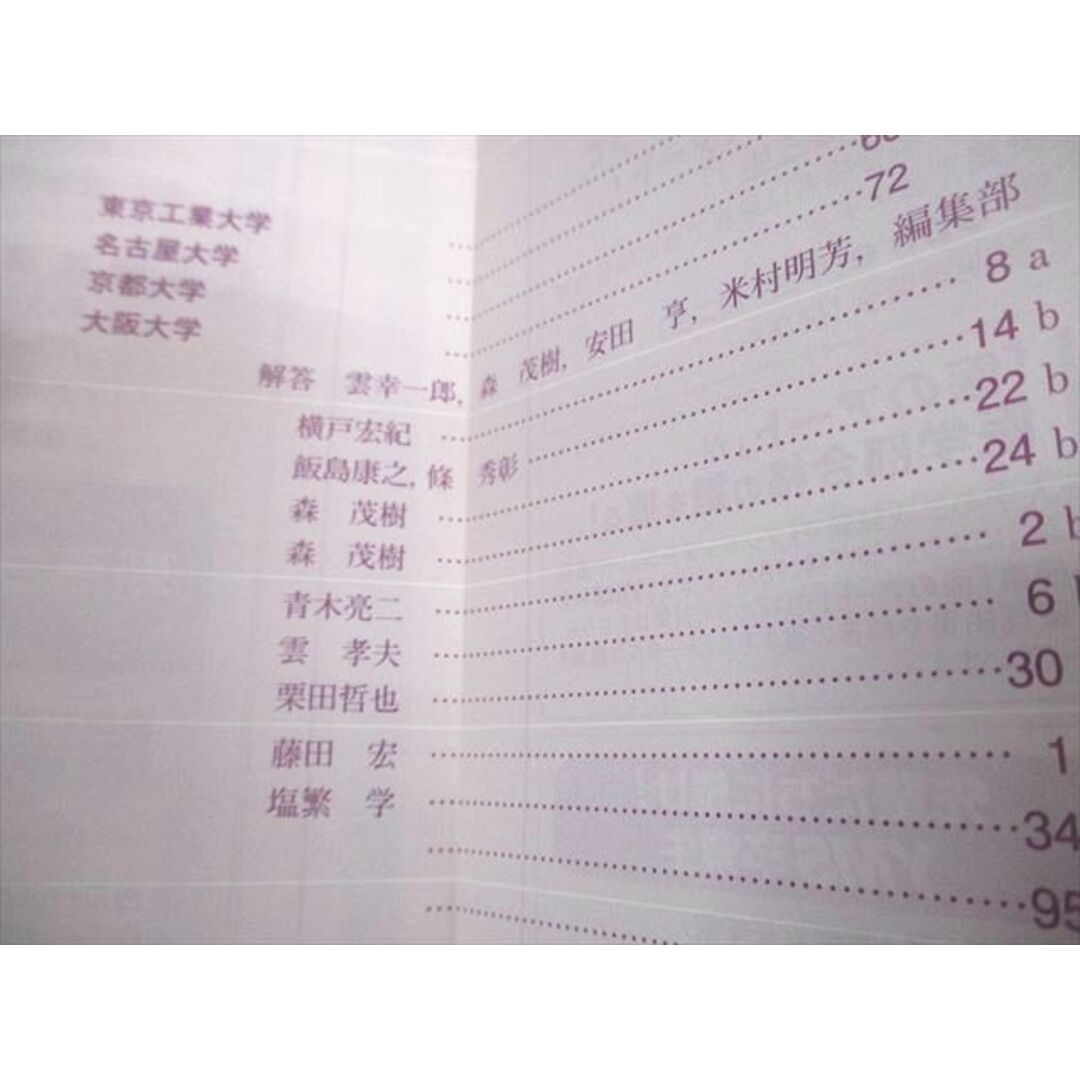 東京工業大学
名古屋大学
京都大学
大阪大学 72
解答 雲幸一郎, 森 茂樹, 安田 亨, 米村明芳, 編集部
横戸宏紀 8 a
飯島康之, 條 秀彰 14 b
森 茂樹 22 b
森 茂樹 24 b
青木亮二 2 b
雲 孝夫 6
栗田哲也 30
藤田 宏 1
塩繁 学 34
95